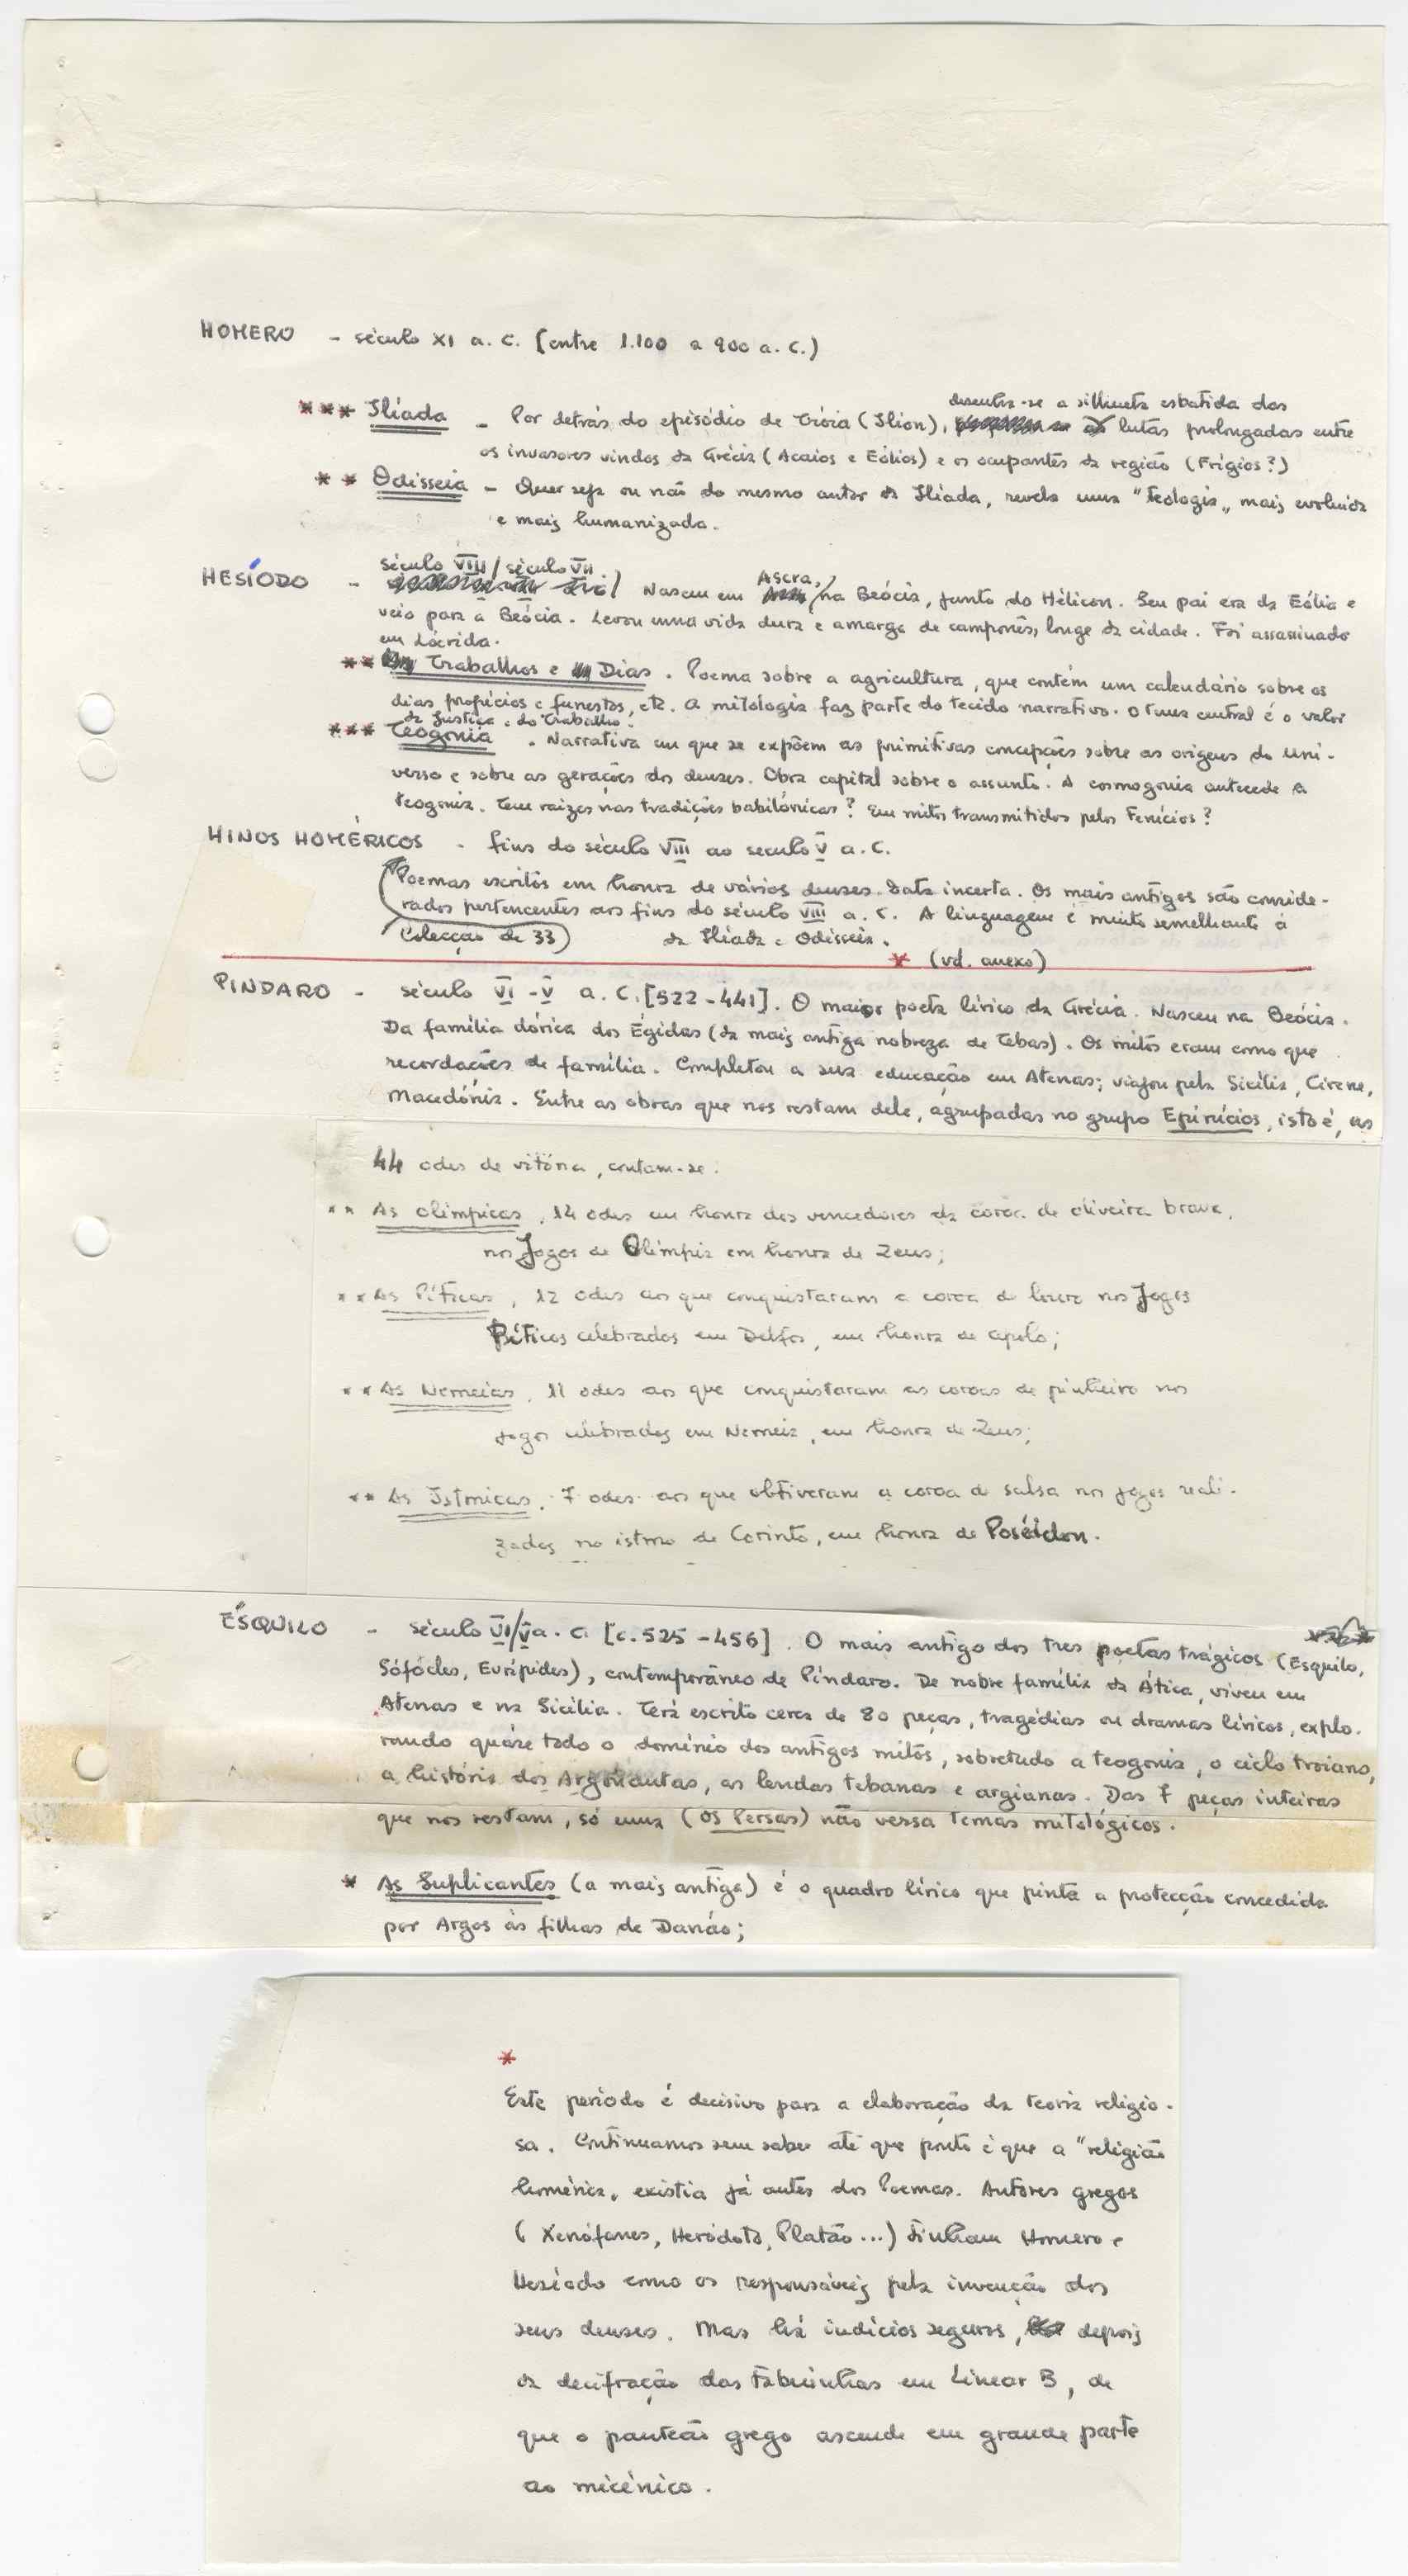 HOMERO - século XI a. C. [entre 1.100 a 900 a. C.)
desenha-se a silhueta esbatida das
*** Ilíada - Por detrás do episódio de Tróia (Ílion), lutas prolongadas entre
os invasores vindos da Grécia (Acaios e Eólios) e os ocupantes da região (Frígios?)
** Odisseia - Quer seja ou não do mesmo autor da Ilíada, revela uma "teologia" mais evoluída
e mais humanizada.
século VIII / século VII
HESÍODO - Nasceu em Ascra, na Beócia, junto do Hélicon. Seu pai era da Eólia e
veio para a Beócia. Levou uma vida dura e amarga de camponês, longe da cidade. Foi assassinado
em Lócrida.
** Trabalhos e Dias. Poema sobre a agricultura, que contém um calendário sobre os
dias propícios e funestos, etc. A mitologia faz parte do tecido narrativo. O tema central é o valor
da Justiça e do Trabalho.
*** Teogonia. Narrativa em que se expõem as primitivas concepções sobre as origens do uni-
verso e sobre as gerações dos deuses. Obra capital sobre o assunto. A cosmogonia antecede a
teogonia. Tem raizes nas tradições babilónicas? Em mitos transmitidos pelos Fenícios?
HINOS HOMÉRICOS - fins do século VIII ao século V a. C.
Poemas escritos em honra de vários deuses. Data incerta. Os mais antigos são conside-
rados pertencentes aos fins do século VIII a. C. A linguagem é muito semelhante à
(Colecção de 33) da Ilíada e Odisseia.
* (vd. anexo)
PÍNDARO - século VI - V a. C. [522-441]. O maior poeta lírico da Grécia. Nasceu na Beócia.
Da família dórica dos Égidas (da mais antiga nobreza de Tebas). Os mitos eram como que
recordações de família. Completou a sua educação em Atenas; viajou pela Sicília, Cirene,
Macedónia. Entre as obras que nos restam dele, agrupadas no grupo Epinícios, isto é, as
44 odes de vitória, contam-se:
** As Olímpicas, 14 odes em honra dos vencedores da coroa de oliveira brava,
nos Jogos de Olímpia em honra de Zeus;
** As Píticas, 12 odes aos que conquistaram a coroa de louro nos Jogos
Píticos celebrados em Delfos, em honra de Apolo;
** As Nemeias, 11 odes aos que conquistaram as coroas de pinheiro nos
jogos celebrados em Nemeia, em honra de Zeus;
** As Ístmicas, 7 odes aos que obtiveram a coroa de salsa nos jogos reali-
zados no istmo de Corinto, em honra de Poséidon.
ÉSQUILO - século VI/V a. C. [c. 525-456]. O mais antigo dos tres poetas trágicos (Ésquilo,
Sófocles, Eurípides), contemporâneo de Píndaro. De nobre família da Ática, viveu em
Atenas e na Sicília. Terá escrito cerca de 80 peças, tragédias ou dramas líricos, explo-
rando quáse todo o domínio dos antigos mitos, sobretudo a teogonia, o ciclo troiano,
a história dos Argonautas, as lendas tebanas e argianas. Das 7 peças inteiras
que nos restam, só uma (Os Persas) não versa temas mitológicos.
* As Suplicantes (a mais antiga) é o quadro lírico que pinta a protecção concedida
por Argos às filhas de Danáo;
*
Este período é decisivo para a elaboração da teoria religio-
sa. Continuamos sem saber até que ponto é que a "religião
homérica" existia já antes dos Poemas. Autores gregos
(Xenófanes, Heródoto, Platão...) tinham Homero e
Hesíodo como os responsáveis pela invenção dos
seus deuses. Mas há indícios seguros, depois
da decifração das tabuinhas em Linear B, de
que o panteão grego ascende em grande parte
ao micénico.